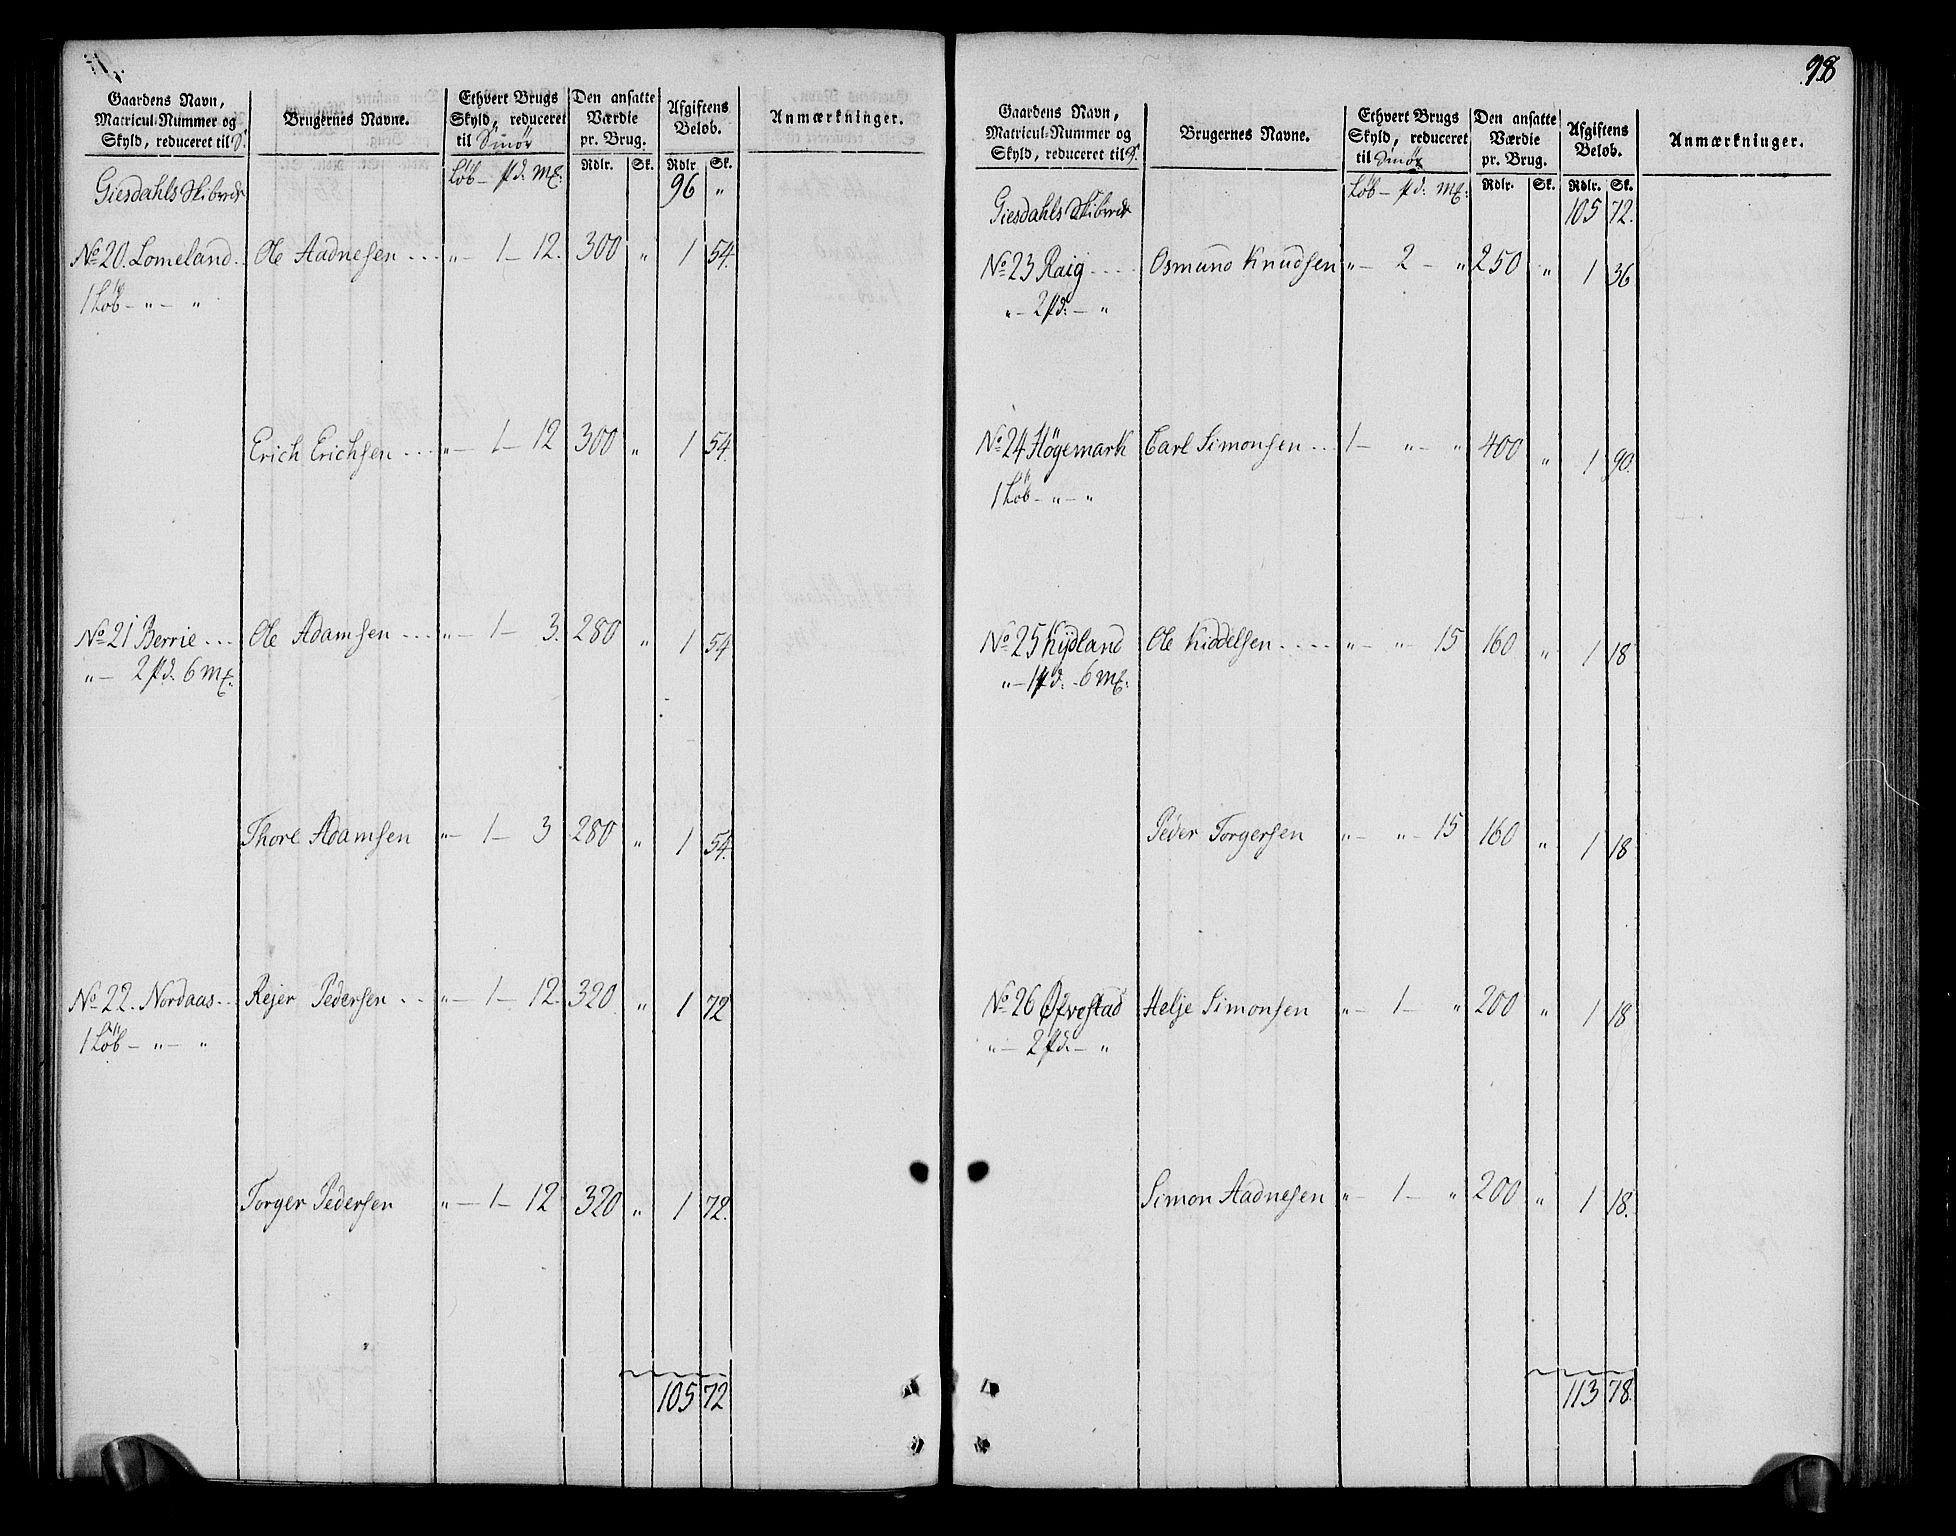 Gaardens Navn, Matricul-Nummer og Skyld, reduceret til
Brugernes Navne.
Ethvert Brugs Skyld, reduceret til Smör
Den ansatte Værdie pr. Brug.
Afgiftens Beløb.
Anmærkninger.
Rdlr. Sk. Rdlr Sk.
Giesdahls Skibrede Löb — pd: mk: 96 "
No 20. Lomeland .. Ole Aadnesen ... " — 1 — 12. 300 " 1 54.
1 Löb — " — "
Erich Erichsen ... " — 1 — 12 300 " 1 54.
No 21 Berrie ... Ole Adamsen ... " — 1 — 3. 280 " 1 54
" — 2 pd. 6 mk:
Thore Adamsen " — 1 — 3 280 " 1 54.
No 22. Nordaas .. Rejer Pedersen .. " — 1 — 12. 320 " 1 72
1 Löb — " — "
Torger Pedersen " — 1 — 12 320 " 1 72.
105 72
98
Gaardens Navn, Matricul-Nummer og Skyld, reduceret til
Brugernes Navne.
Ethvert Brugs Skyld, reduceret til Smör
Den ansatte Værdie pr. Brug.
Afgiftens Beløb.
Anmærkninger.
Rdlr. Sk. Rdlr. Sk.
Giesdahls Skibrede Löb — pd: mk: 105 72.
No 23 Raig .... Osmund Knudsen " — 2 — " 250 " 1 36
" — 2 pd: — "
No 24 Högemark Carl Simonsen .. 1 — " — " 400 " 1 90.
1 Löb — " — "
No 25 Kydland Ole Kiddelsen .... " — " — 15 160 " 1 18
" — 1 pd: - 6 mk:
Peder Torgersen " — " — 15 160 " 1 18
No 26 Øvestad Helje Simonsen " — 1 — " 200 " 1 18
" — 2 pd. — "
Simon Aadnesen " — 1 — " 200 " 1 18.
113 78.